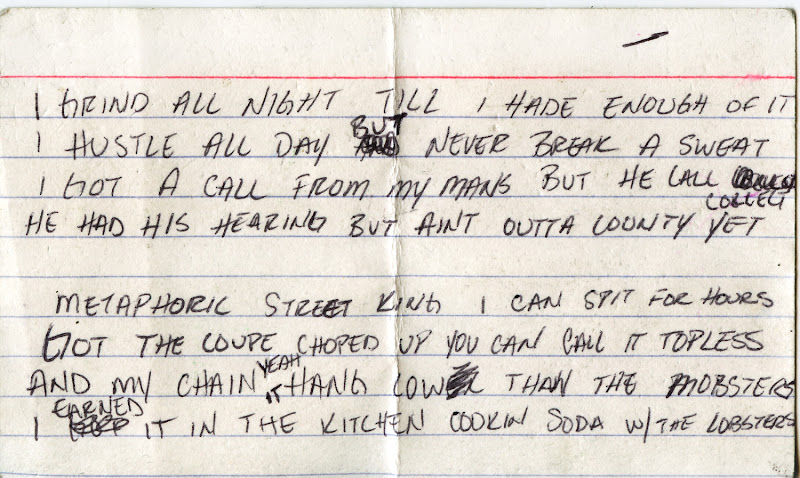 I GRIND ALL NIGHT TILL I HADE ENOUGH OF IT
I HUSTLE ALL DAY BUT NEVER BREAK A SWEAT
I GOT A CALL FROM MY MANS BUT HE CALL COLLECT
HE HAD HIS HEARING BUT AINT OUTTA COUNTY YET
METAPHORIC STREET KING I CAN SPIT FOR HOURS
GOT THE COUPE CHOPED UP YOU CAN CALL IT TOPLESS
AND MY CHAIN YEAH IT HANG LOWER THAN THE MOBSTERS
I EARNED IT IN THE KITCHEN COOKIN SODA W/ THE LOBSTERS